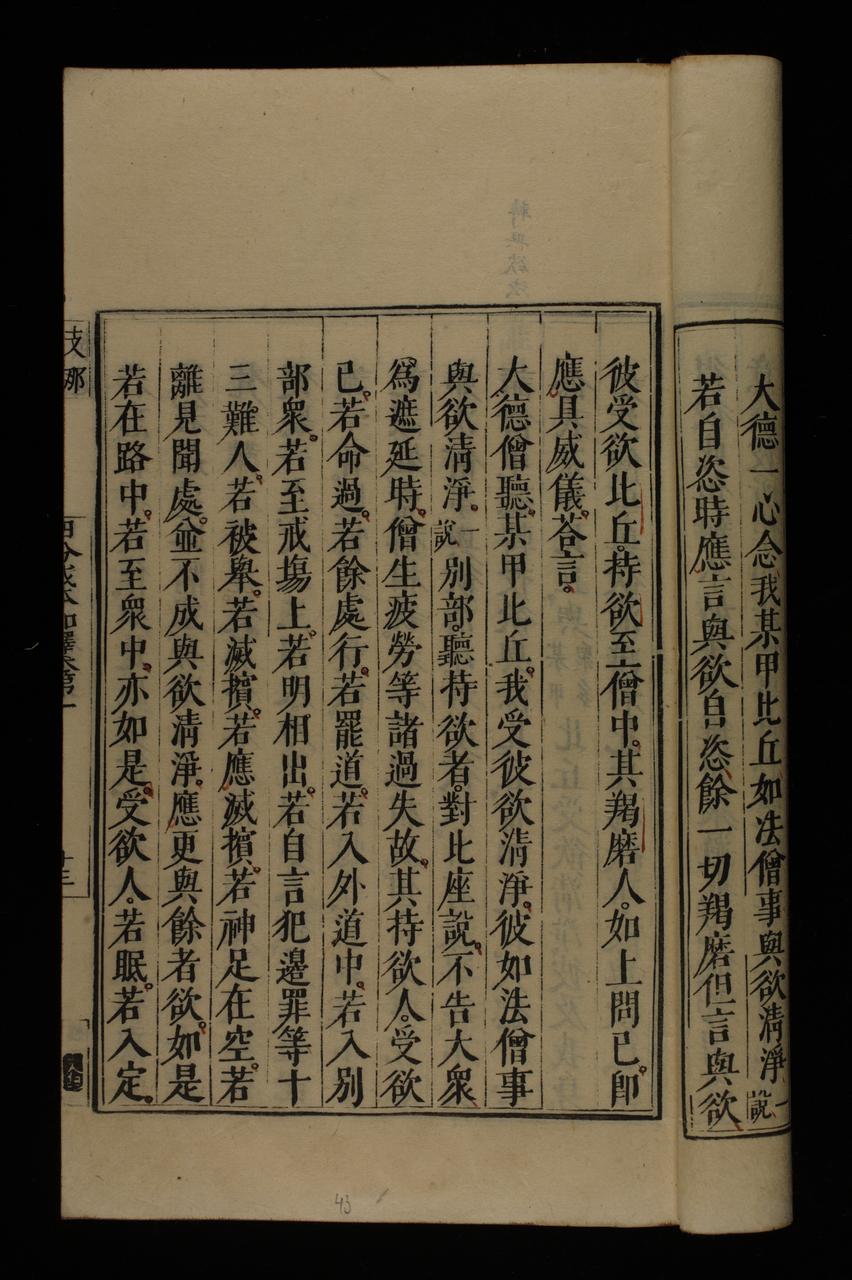 大德一心念我某甲比丘如法僧事與欲清淨一說
若自恣時應言與欲自恣餘一切羯磨但言與欲
彼受欲比丘。持欲至僧中。其羯磨人。如上問已。即
應具威儀。荅言。
大德僧聽。某甲比丘。我受彼欲清淨。彼如法僧事
與欲清淨。一說別部。聽持欲者。對比座說。不告大衆。
爲遮延時。僧生疲勞等諸過失故。其持欲人。受欲
已。若命過。若餘處行。若罷道。若入外道中。若入別
部衆。若至戒塲上。若明相出。若自言犯邊罪等十
三難人。若被舉。若滅擯。若應滅擯。若神足在空。若
離見聞處。並不成與欲清淨。應更與餘者欲。如是
若在路中。若至衆中。亦如是。受欲人。若眠。若入定。
支那
十三
43